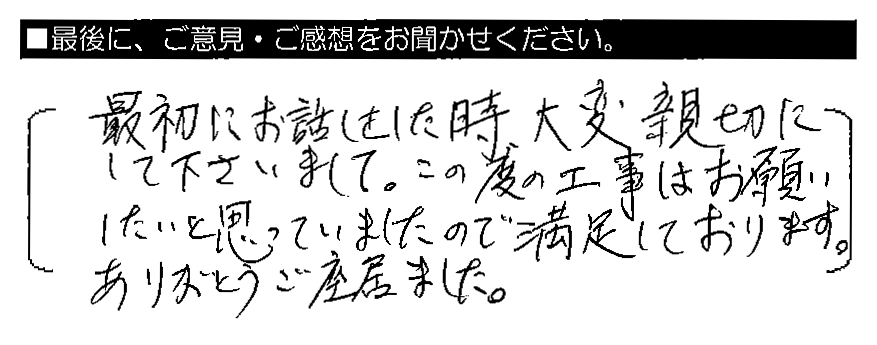 ■最後に、ご意見・ご感想をお聞かせください。
最初にお話しをした時大変親切に
して下さいまして。この度の工事はお願い
したいと思っていましたので満足しております。
ありがとうご座居ました。